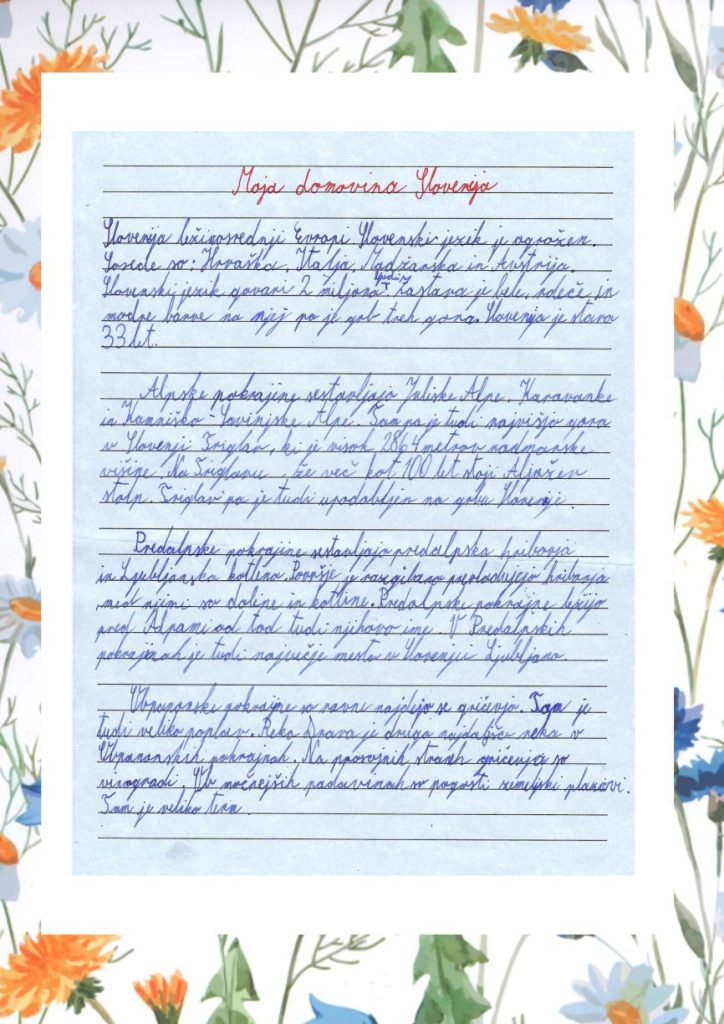 Moja domovina Slovenija
Slovenija leži v osrednji Evropi Slovenski jezik je ogrožen.
Sosede so: Hrvaška, Italja, Madžarska in Avstrija.
Slovenski jezik govori 2 miljona ljudi. Zastava je bele, rdeče, in
modre barve na njej pa je grb treh gora. Slovenija je stara
33 let.
Alpske pokrajine sestavljajo Juliske Alpe, Karavanke
in Kamniško-Savinjske Alpe. Tam pa je tudi najvišja gora
v Sloveniji Triglav, ki je visok 2864 metrov nadmorske
višine. Na Triglavu, že več kot 100 let stoji Aljažev
stolp. Triglav pa je tudi upodabljen na grbu Slovenije.
Predalpske pokrajine sestavljajo predalpska hribovja
in Ljubljanska kotlina. Površje je razgibano prevladujejo hribovja
med njimi so doline in kotline. Predalpske pokrajne ležijo
pred Alpami od tod tudi njihovo ime. V Predalpskih
pokrajnah je tudi največje mesto v Sloveniji Ljubljana.
Obpanonske pokrajne so ravne najdejo se gričevja. Tam je
tudi veliko poplav. Reka Drava je druga najdaljša reka v
Obpananskih pokrajnah. Na prosojnih straneh gričevja so
vinogradi. Ob močnejših padavinah so pogosti zemeljski plazovi.
Tam je veliko term.